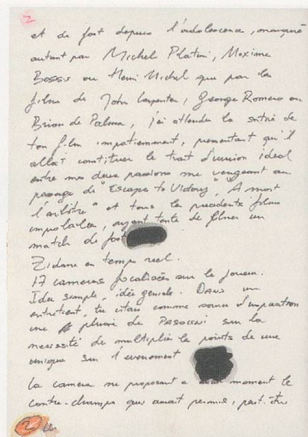 2
et de foot depuis l'adolescence, marqué
autant par Michel Platini, Maxime
Bossis ou Henri Michel que par les
films de John Carpenter, George Romero ou
Brian de Palma, j'ai attendu la sortie de
ton film impatiemment, pressentant qu'il
allait constituer le trait d'union idéal
entre mes deux passions me vengeant au
passage de "Escape to Victory", "A mort
l'arbitre" et tous les précédents films
ayant tenté de filmer un
match de foot
Zidane en temps réel.
17 cameras focalisées sur le joueur.
Idée simple, idée géniale. Dans un
entretien, tu citais comme source d'inspiration
une phrase de PASOLINI sur la
nécessité de multiplier les points de vue
sur l'évènement
La camera me proposant à moment le
contre-champs qui aurait permis, peut-être
2